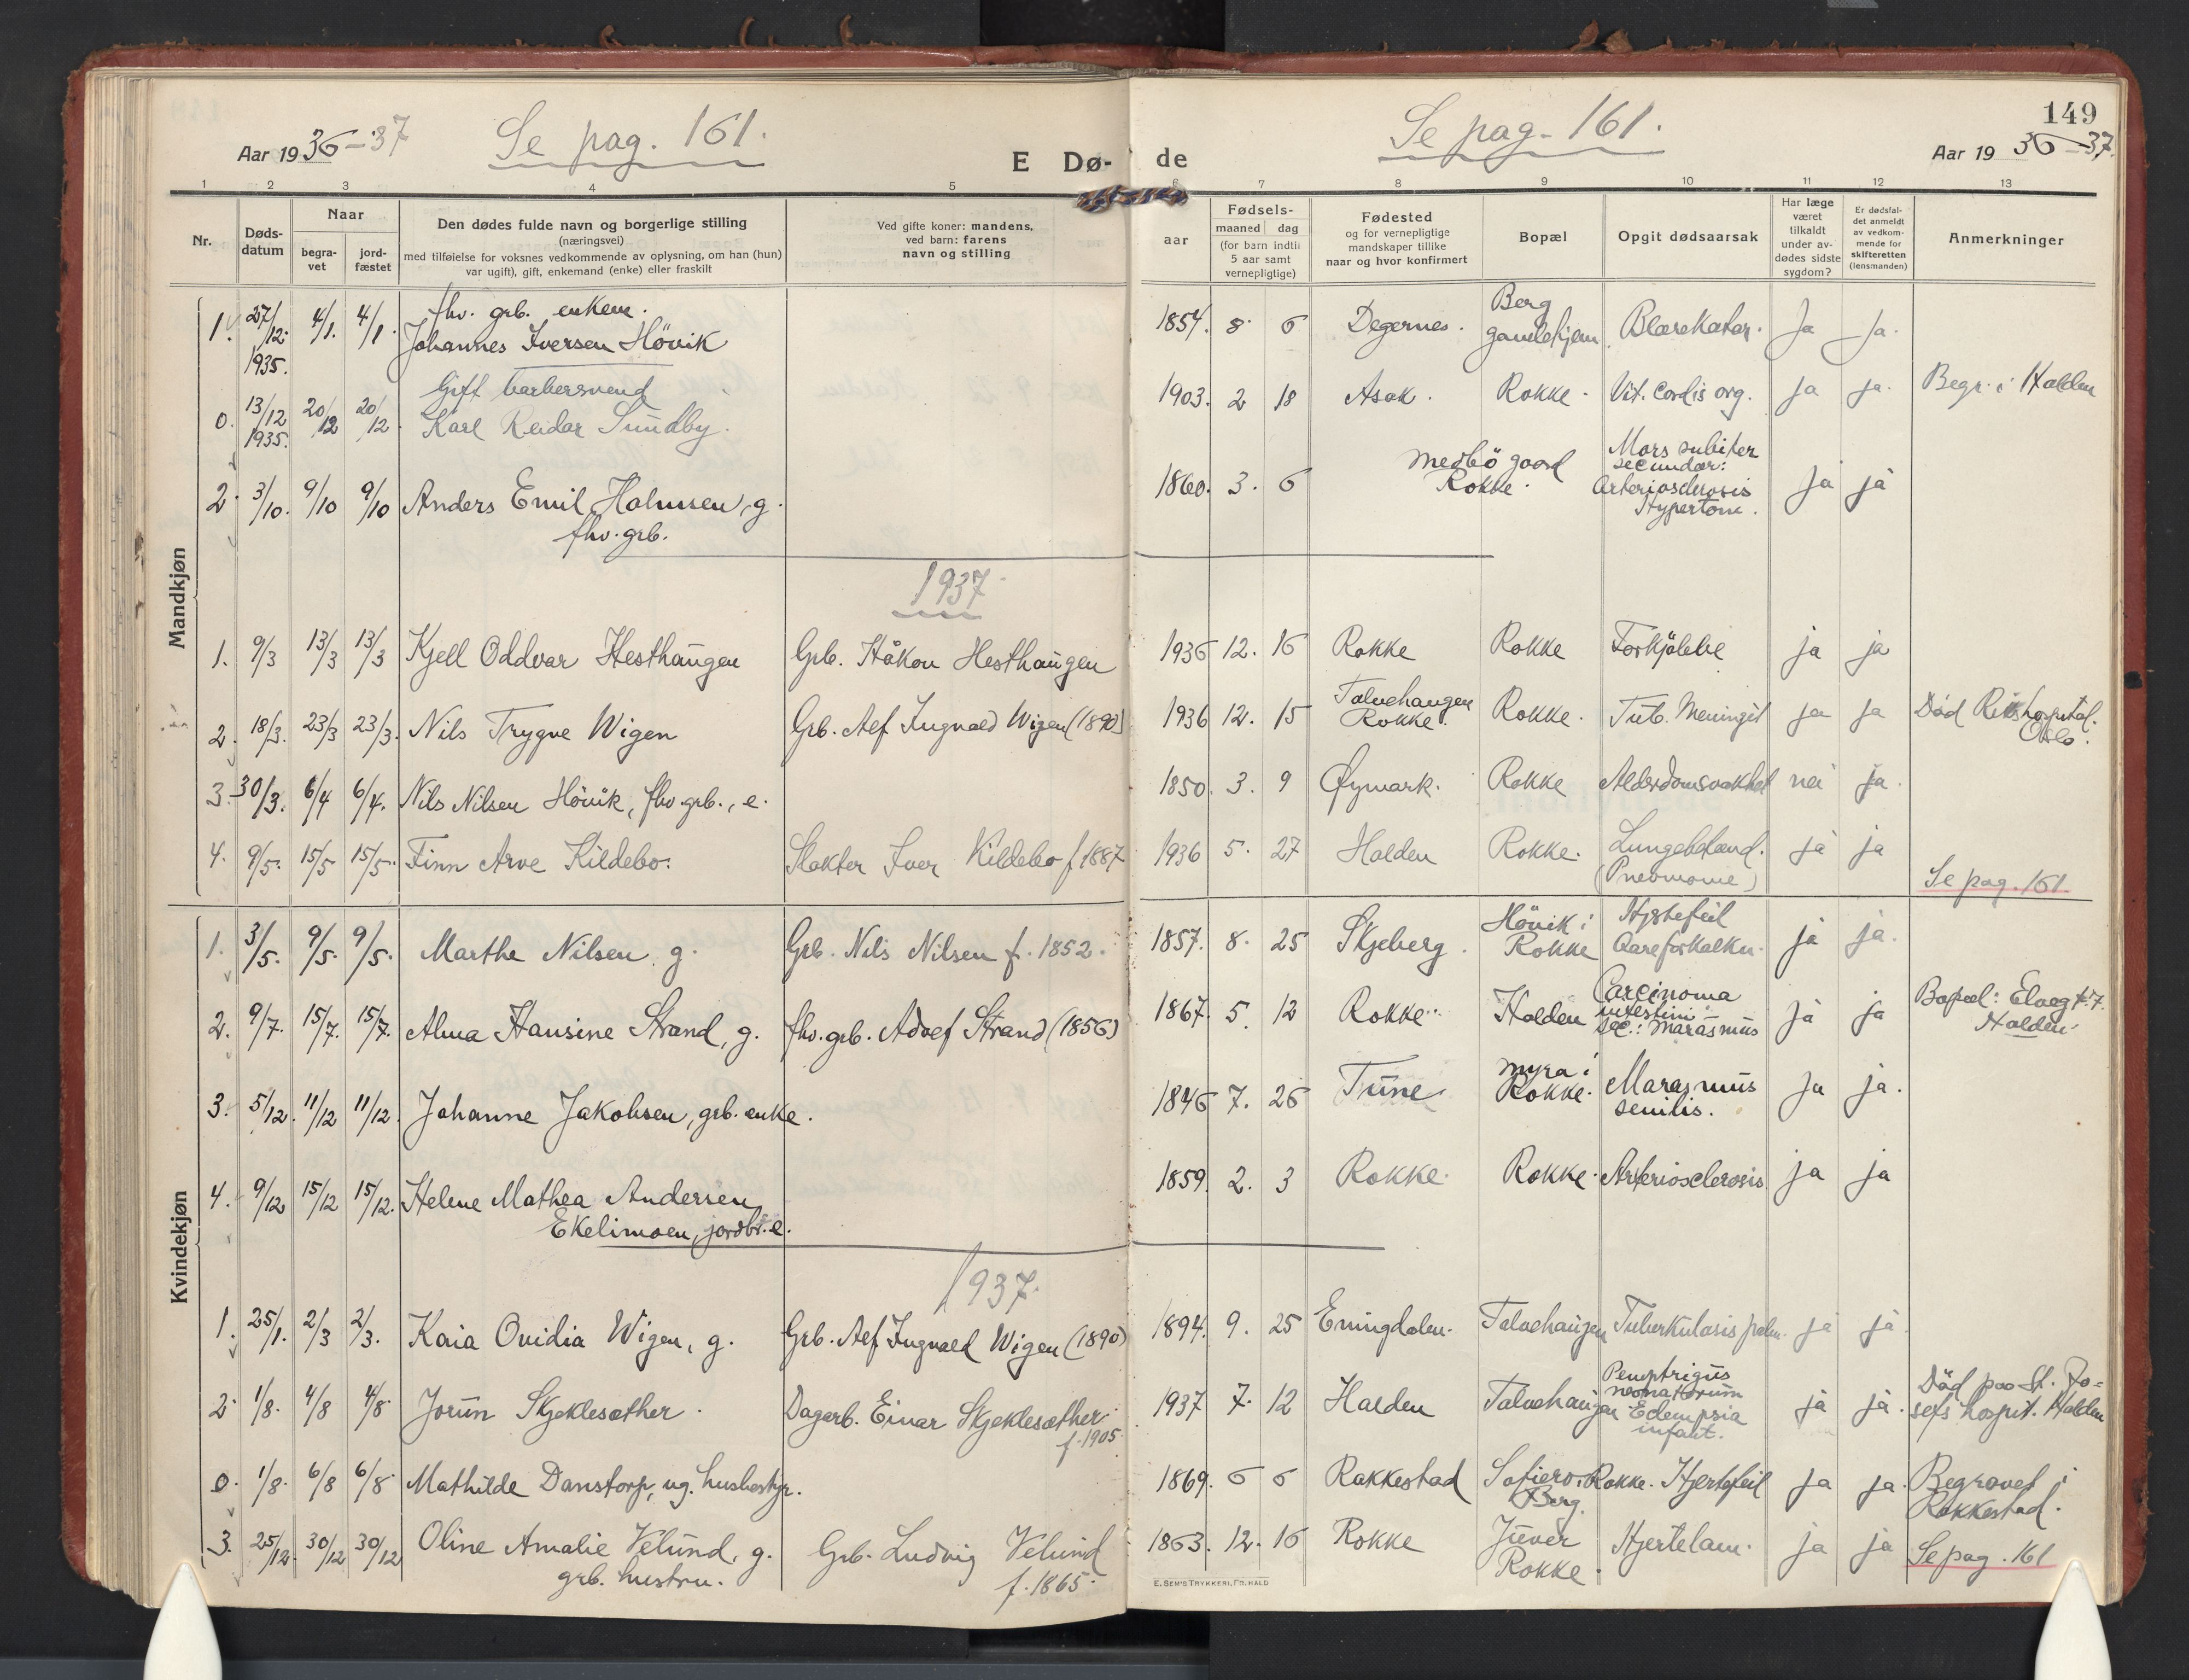 149
Aar 1936-37 Se pag. 161. E Dø-de Se pag. 161. Aar 1936-37.
1 2 3 4 5 6 7 8 9 10 11 12 13
Nr.
Døds-
datum
Naar
begra-
vet
jord-
fæstet
Den dødes fulde navn og borgerlige stilling
(næringsvei)
med tilføielse for voksnes vedkommende av oplysning, om han (hun)
var ugift), gift, enkemand (enke) eller fraskilt
Ved gifte koner: mandens,
ved barn: farens
navn og stilling
Fødsels-
aar
maaned dag
(for barn indtil
5 aar samt
vernepligtige)
Fødested
og for vernepligtige
mandskaper tillike
naar og hvor konfirmert
Bopæl
Opgit dødsaarsak
Har læge
været
tilkaldt
under av-
dødes sidste
sygdom?
Er dødsfal-
det anmeldt
av vedkom-
mende for
skifteretten
(lensmanden)
Anmerkninger
Mandkjøn
1. 27/12 1935. 4/1. 4/1. fhv. grb. enkem.
Johannes Iversen Hövik 1854. 8. 6 Degernes. Berg gamlehjem Blærekatar. Ja Ja.
0. 13/12 1935. 20/12 20/12. Gift barbersvend
Karl Reidar Sundby. 1903. 2 18 Asak. Rokke. Vit. cordis org. ja ja. Begr. i Halden
2. 3/10. 9/10 9/10 Anders Emil Holmsen, g.
fhv. grb. 1860. 3. 6 Medbö gaard
Rokke. Mors subiter
secundær:
Arteriosclerosis
Hypertoni. Ja ja
1937.
1. 9/3 13/3 13/3 Kjell Oddvar Hesthaugen Grb. Håkon Hesthaugen 1936 12. 16 Rokke Rokke Forkjölelse ja ja
2. 18/3. 23/3 23/3. Nils Trygve Wigen Grb. Alf Ingvald Wigen (1890) 1936 12. 15 Talvehaugen
Rokke. Rokke. Tub. Meningit ja ja Död Rikshospital.
Oslo.
3. 30/3. 6/4 6/4. Nils Nilsen Hövik, fhv. grb., e. 1850. 3. 9 Øymark. Rokke Alderdomsvakhet nei ja.
4. 9/5. 15/5 15/5. Finn Arve Kildebo. Slakter Iver Kildebo f. 1887 1936 5. 27 Halden Rokke. Lungebetænd.
(Pneumonie) ja ja
Se pag. 161.
Kvindekjøn
1. 3/5. 9/5. 9/5. Marthe Nilsen g. Grb. Nils Nilsen f. 1852. 1857. 8. 25 Skjeberg. Hövik i
Rokke Hjertefeil
Aareforkalkn. ja ja.
2. 9/7. 15/7. 15/7. Alma Hansine Strand, g. fhv. grb. Adolf Strand (1856) 1867. 5. 12 Rokke. Halden Carcinoma
intestini
sec.: Marasmus Ja ja Bopæl:
Halden.
3. 5/12. 11/12 11/12. Johanne Jakobsen, grb. enke. 1846 7. 26 Tune Myra i
Rokke. Marasmus
senilis. Ja ja.
4. 9/12 15/12 15/12. Helene Mathea Andersen
Ekelimoen, jordbr. e. 1859. 2. 3 Rokke. Rokke. Arteriosclerosis ja ja
1937.
1. 25/1. 2/3 2/3. Kaia Ovidia Wigen, g. Grb. Alf Ingvald Wigen (1890) 1894. 9. 25 Enningdalen. Talvehaugen Tuberkulosis pulm. ja ja.
2. 1/8. 4/8 4/8 Jorun Skjeklesæther. Dagarb. Einar Skjeklesæther
f. 1905. 1937 7. 12 Halden Talvehaugen Pemphigus
neonatorum
Eclampsia
infant. ja ja. Död paa St. Jo-
sefs hospit. Halden
0. 1/8. 6/8 6/8 Mathilde Danstorp, ug. husbestyr. 1869. 6 6 Rakkestad Sofiero i Rokke.
Berg. Hjertefeil ja ja. Begravet i
Rakkestad.
3. 25/12. 30/12 30/12 Oline Amalie Velund, g.
grb. hustru. Grb. Ludvig Velund
f. 1865. 1863. 12. 16 Rokke Juver
Rokke. Hjertelam. ja ja Se pag. 161
E. SEM'S TRYKKERI, FR.HALD